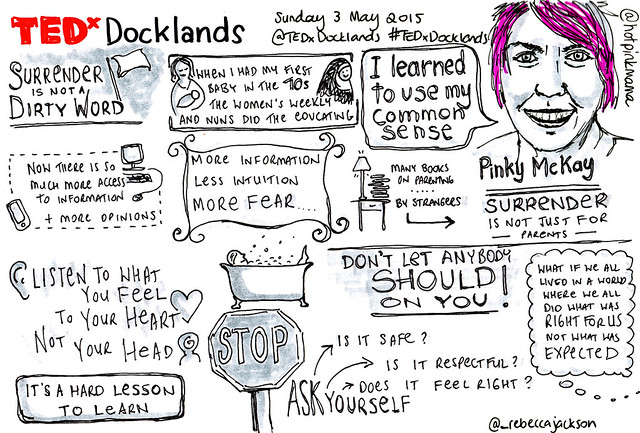 TEDx Docklands
Sunday 3 May 2015
@TEDxDocklands #TEDxDocklands
@hotpinkmama
SURRENDER
IS NOT A
DIRTY WORD
WHEN I HAD MY FIRST
BABY IN THE 70s
THE WOMEN'S WEEKLY
AND NUNS DID THE EDUCATING
I learned
to use my
common
sense
Pinky McKay
SURRENDER
IS NOT JUST FOR
PARENTS
NOW THERE IS SO
MUCH MORE ACCESS
TO INFORMATION
+ MORE OPINIONS
MORE INFORMATION
LESS INTUITION
MORE FEAR....
MANY BOOKS
ON PARENTING
.....
BY STRANGERS
LISTEN TO WHAT
YOU FEEL
TO YOUR HEART
NOT YOUR HEAD
IT'S A HARD LESSON
TO LEARN
DON'T LET ANYBODY
SHOULD!
ON YOU
STOP
ASK YOURSELF
IS IT SAFE?
IS IT RESPECTFUL?
DOES IT FEEL RIGHT?
WHAT IF WE ALL
LIVED IN A WORLD
WHERE WE ALL
DID WHAT WAS
RIGHT FOR US
NOT WHAT WAS
EXPECTED
@_rebeccajackson